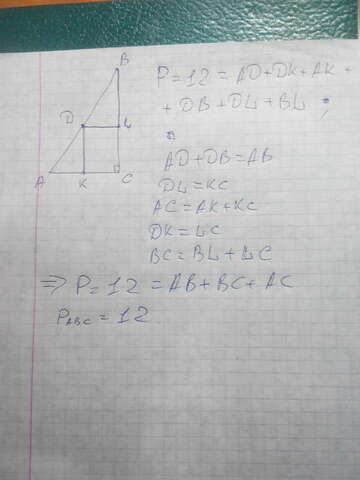 B
P=12 = AD+DK+AK+
+ DB+DL+BL ;
D
L
AD+DB=AB
A K C
DL=KC
AC=AK+KC
DK=LC
BC=BL+LC
=> P=12 =AB+BC+AC
P_ABC=12